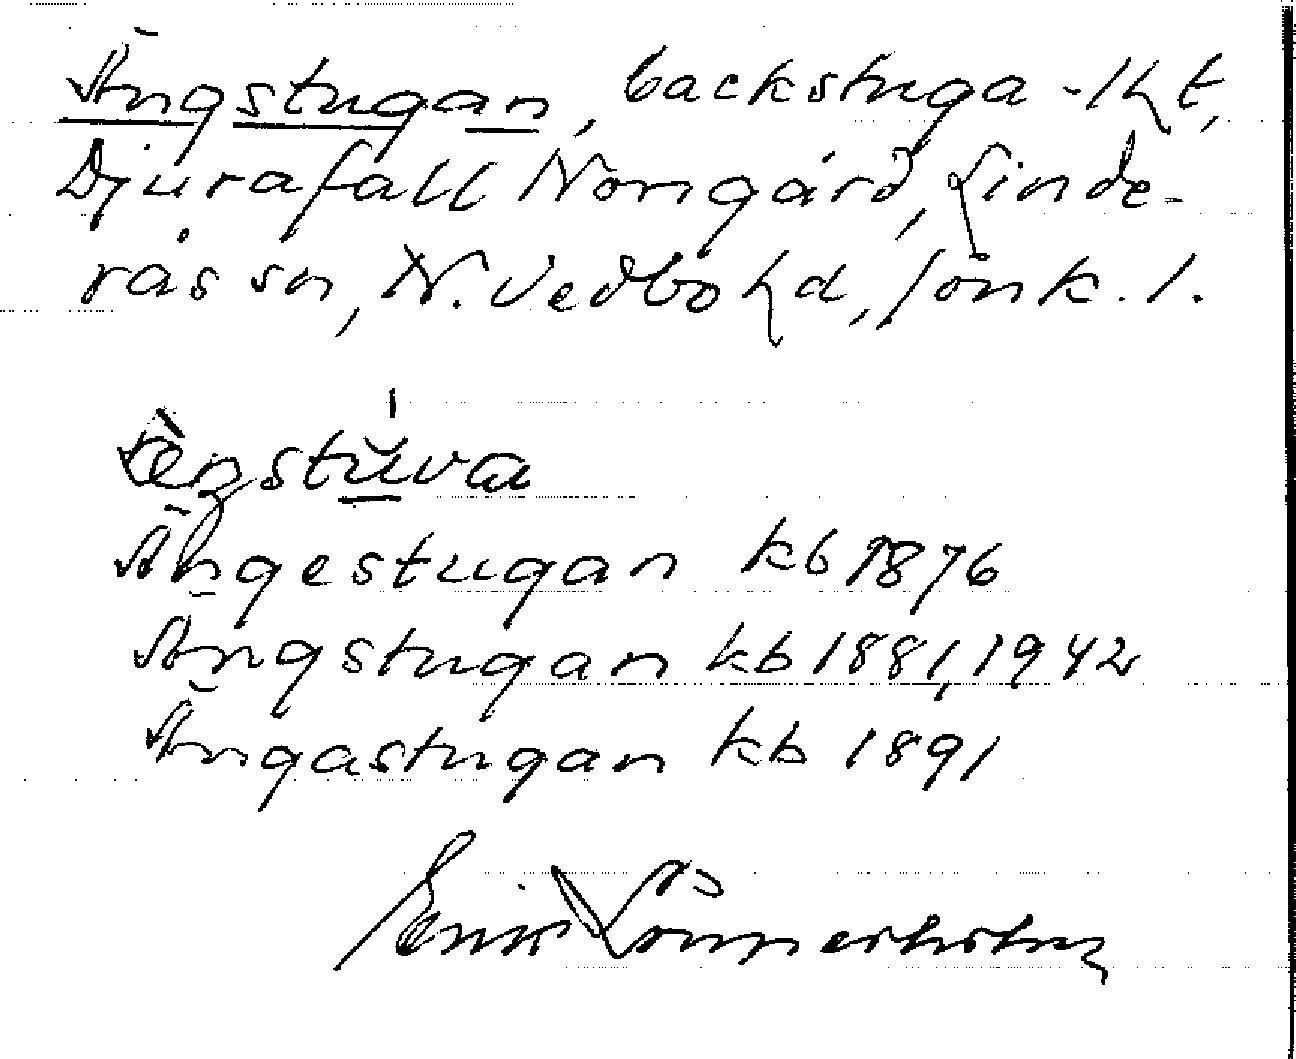 Ängstugan, backstuga - lht,
Djurafall Norrgård, Linde-
rås sn, N. Vedbo hd, Jönk. l.
Ängestugan kb 1876
Ängstugan kb 1881, 1942
Ängastugan kb 1891
Erik